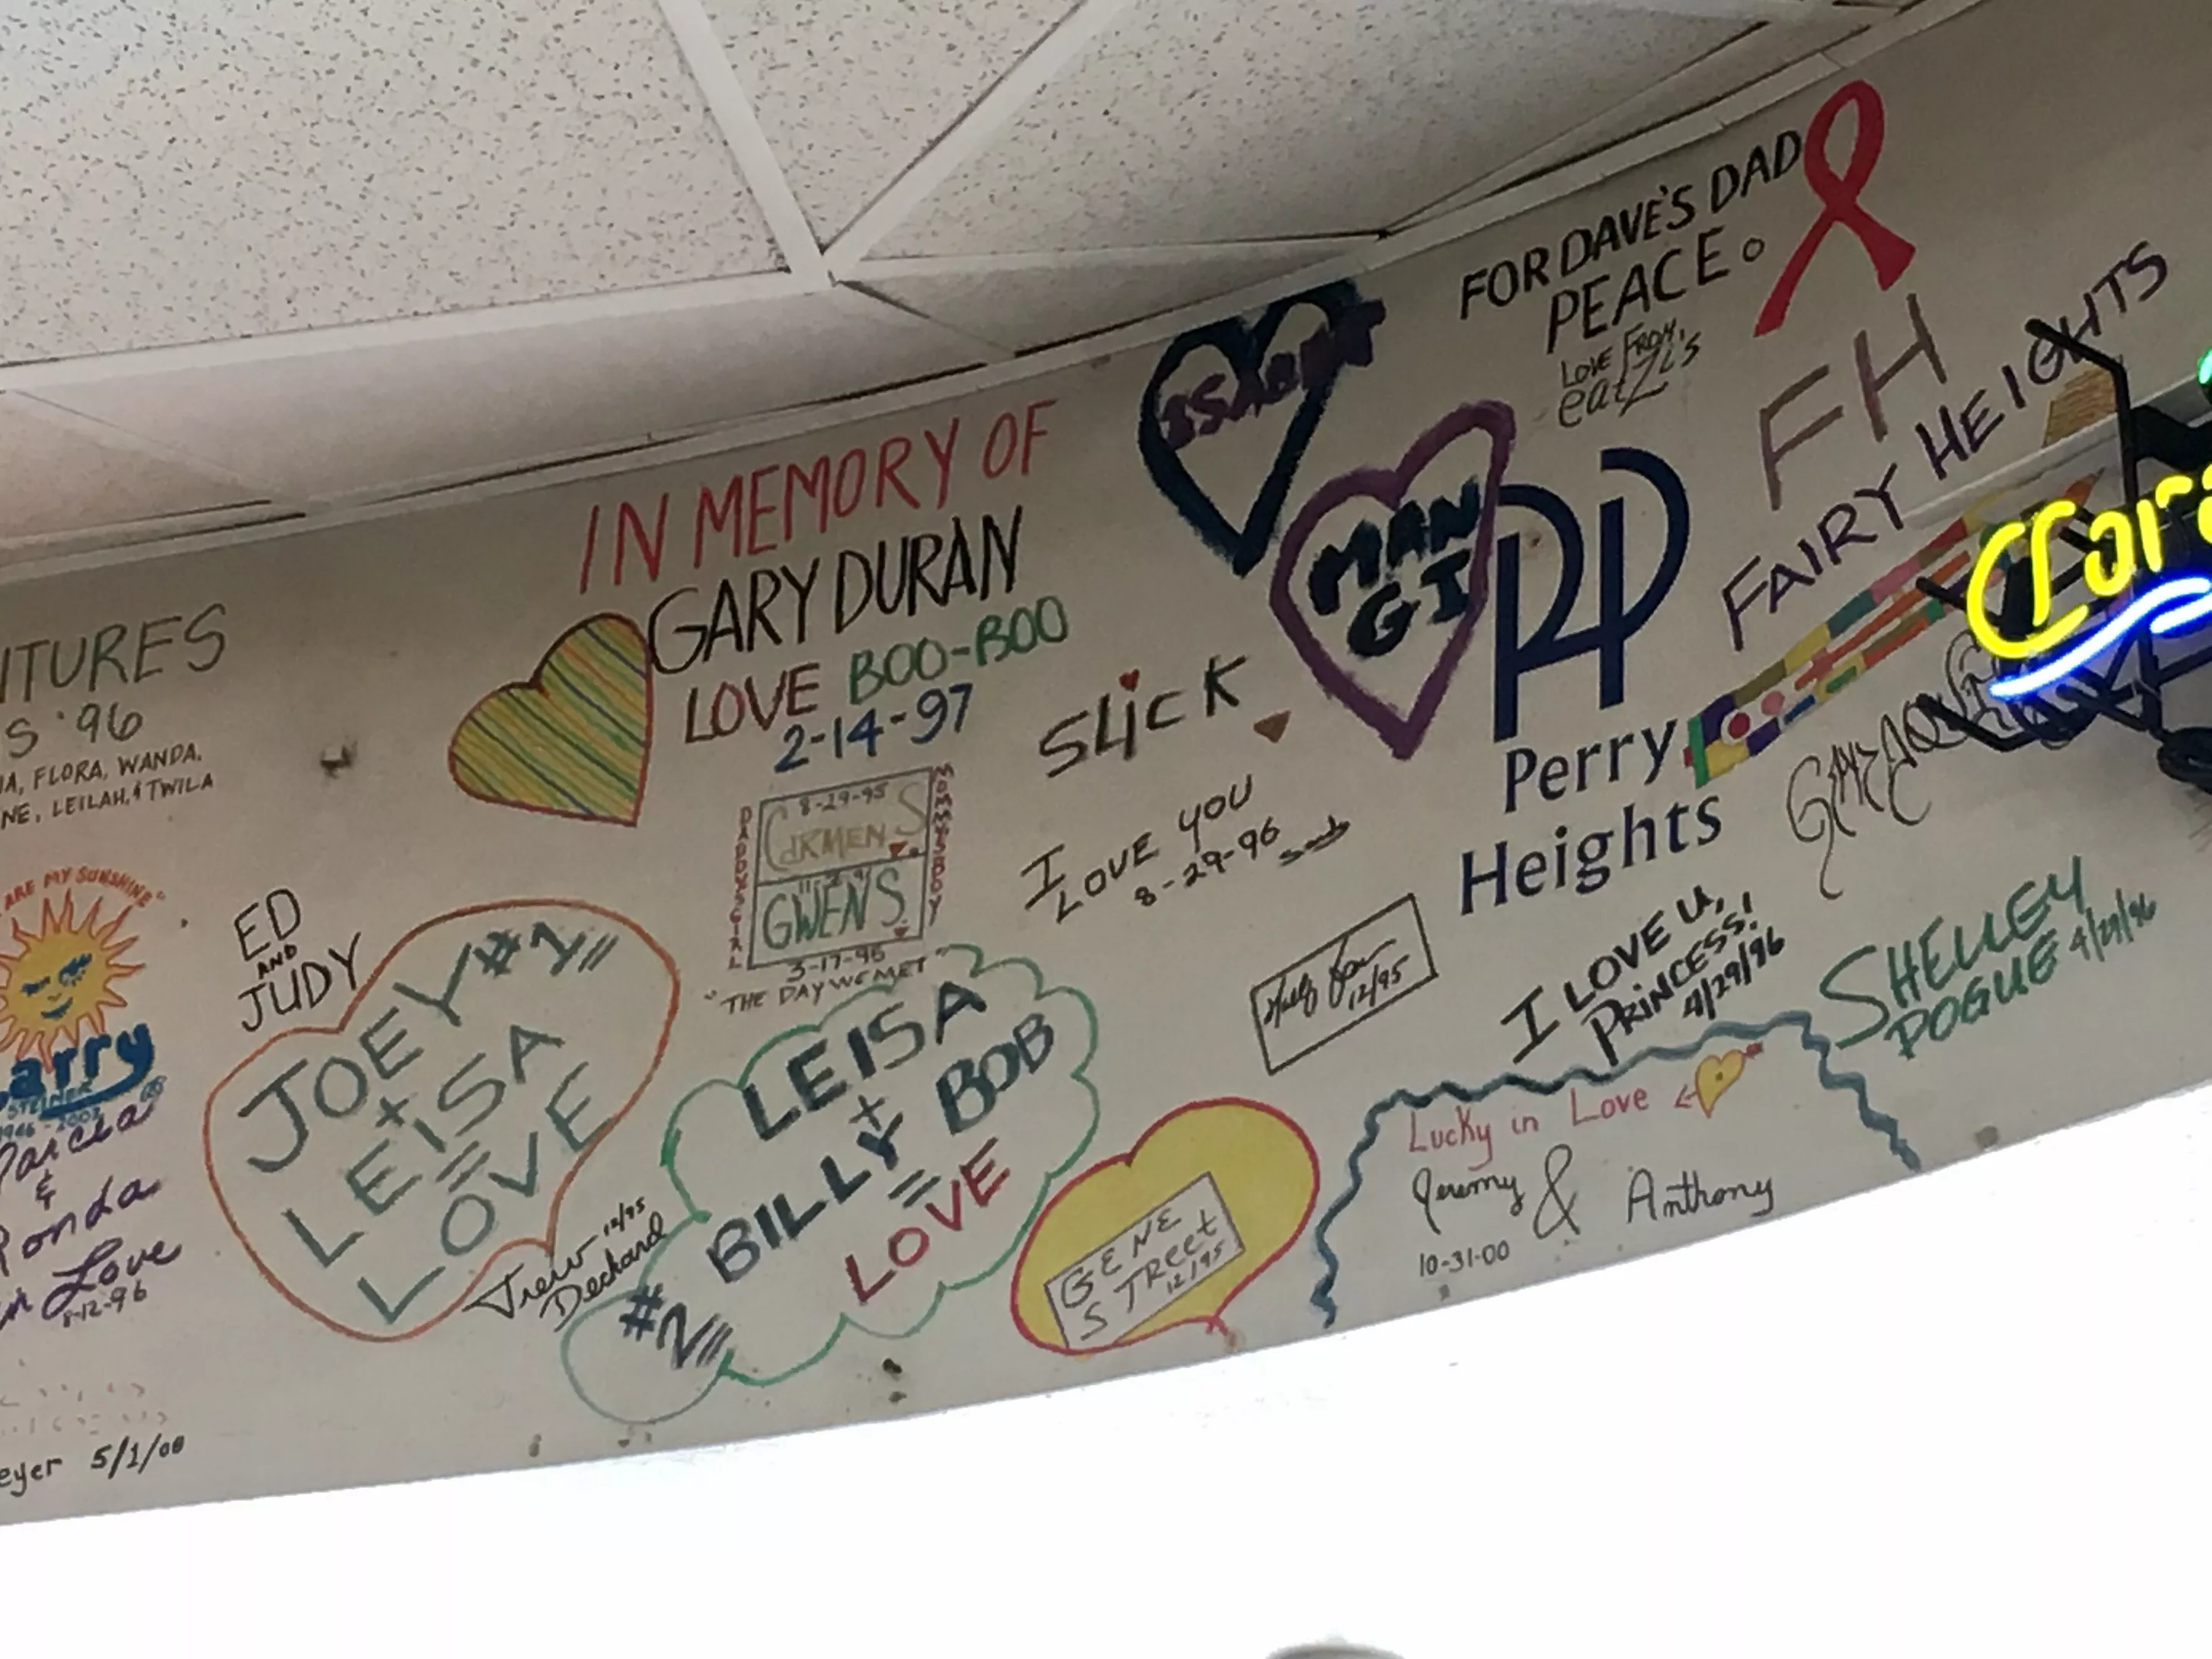 FOR DAVE'S DAD
PEACE.
LOVE FROM,
eatZi's
FH
FAIRY HEIGHTS
IN MEMORY OF
GARY DURAN
LOVE BOO-BOO
2-14-97
MAN
GI
Perry
Heights
SLiCK
I
LOVE YOU
8-29-96
S '96
FLORA, WANDA,
LEILAH, & TWILA
ARE MY SUNSHINE"
8-29-95
CARMEN S
GWEN S.
3-17-95
DADDYS GIRL
"THE DAY WE MET"
ED
AND
JUDY
JOEY #1
+
LEISA
=
LOVE
LEISA
+
BILLY BOB
=
LOVE
#2
12/95
I LOVE U,
PRINCESS!
4/29/96
SHELLEY
POGUE 4/29/96
Lucky in Love
Jeremy & Anthony
10-31-00
GENE
STREET
12/95
Trew 12/95
Dechard
STEINER
1946-2003
&
Ronda
in Love
8-12-96
5/1/00